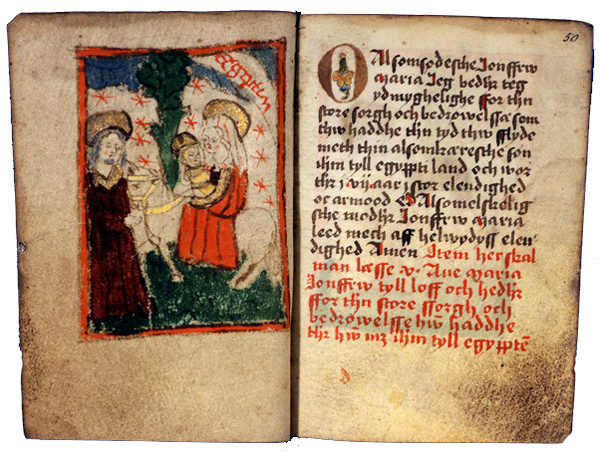 50
O Alsomsodesche Jonffrw
maria Jeg bedhr teg
ydmyghelighe ffor thn
store sorgh och bedrowelssæ som
thw haddhe thin tyd thw fflyde
meth thin alsomkæresche son
ihm tyll egyppti land och wor
thr i vij aar i stor elendighed
oc armood Alsomelskelig
sche modhr Jonffrw maria
leed mech aff helwydyss elen
dighed Amen Item her skal
man læsse v. Aue maria
Jonffrw tyll loff och hedhr
ffor thn store ssorgh och
bedrowelsse hw haddhe
thr hw̄ mz ihm tyll egypptē